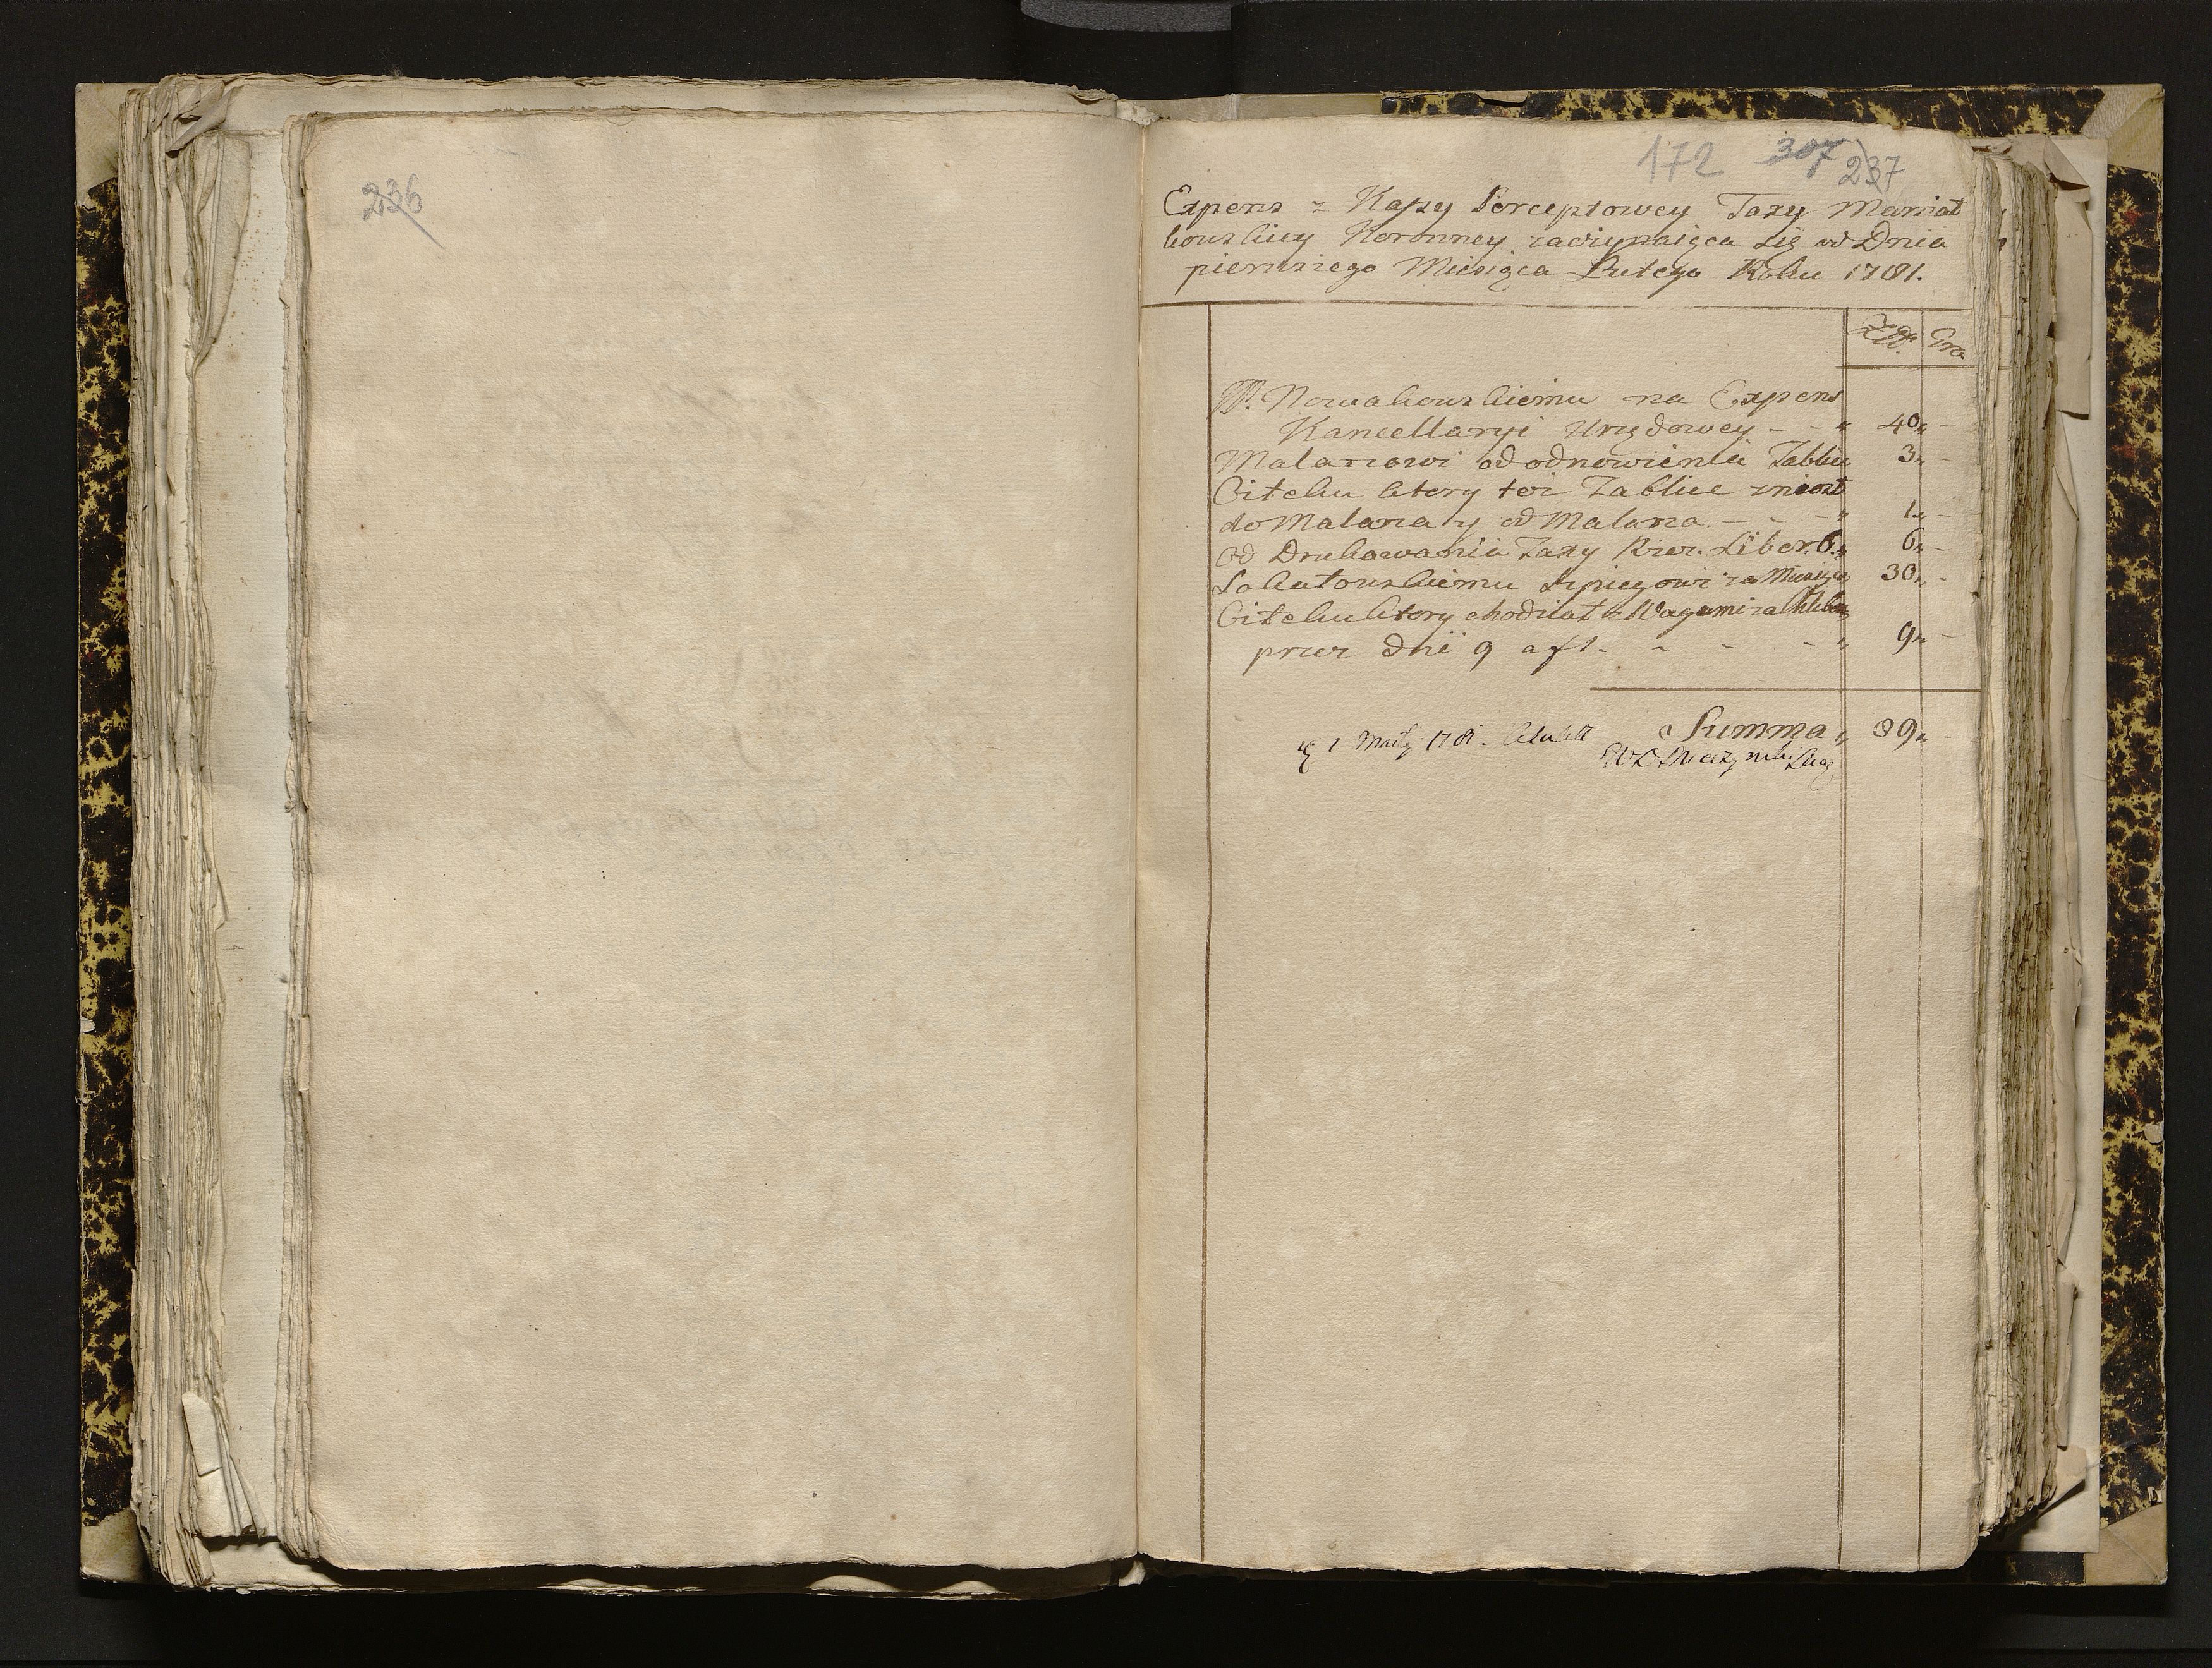 236
172 307 237
Expens z Kassy Perceptowey Taxy Marszał
kowskiey Koronney zaczynaiąca się od Dnia
pierwszego Miesiąca Lutego Roku 1781.
Zł. Gro.
JP. Nowakowskiemu na Expens
Kancellaryi Urzędowey - - " 40 " -
Malarzowi od odnowienia Tablic 3 " -
Citelu ktory też Tablice znosił
do Malarza y od Malarza - - - " 1 " -
Od Drukowania Taxy Rzez. Liber. 6 " 6 " -
Sakutowskiemu Szpiegowi za Miesiąc 30 " -
Citelu ktory chodził z Wagami za Chlebem
przez dni 9 a fl. - - - - " 9 " -
Summa " 89 " -
1 Martij 1781.